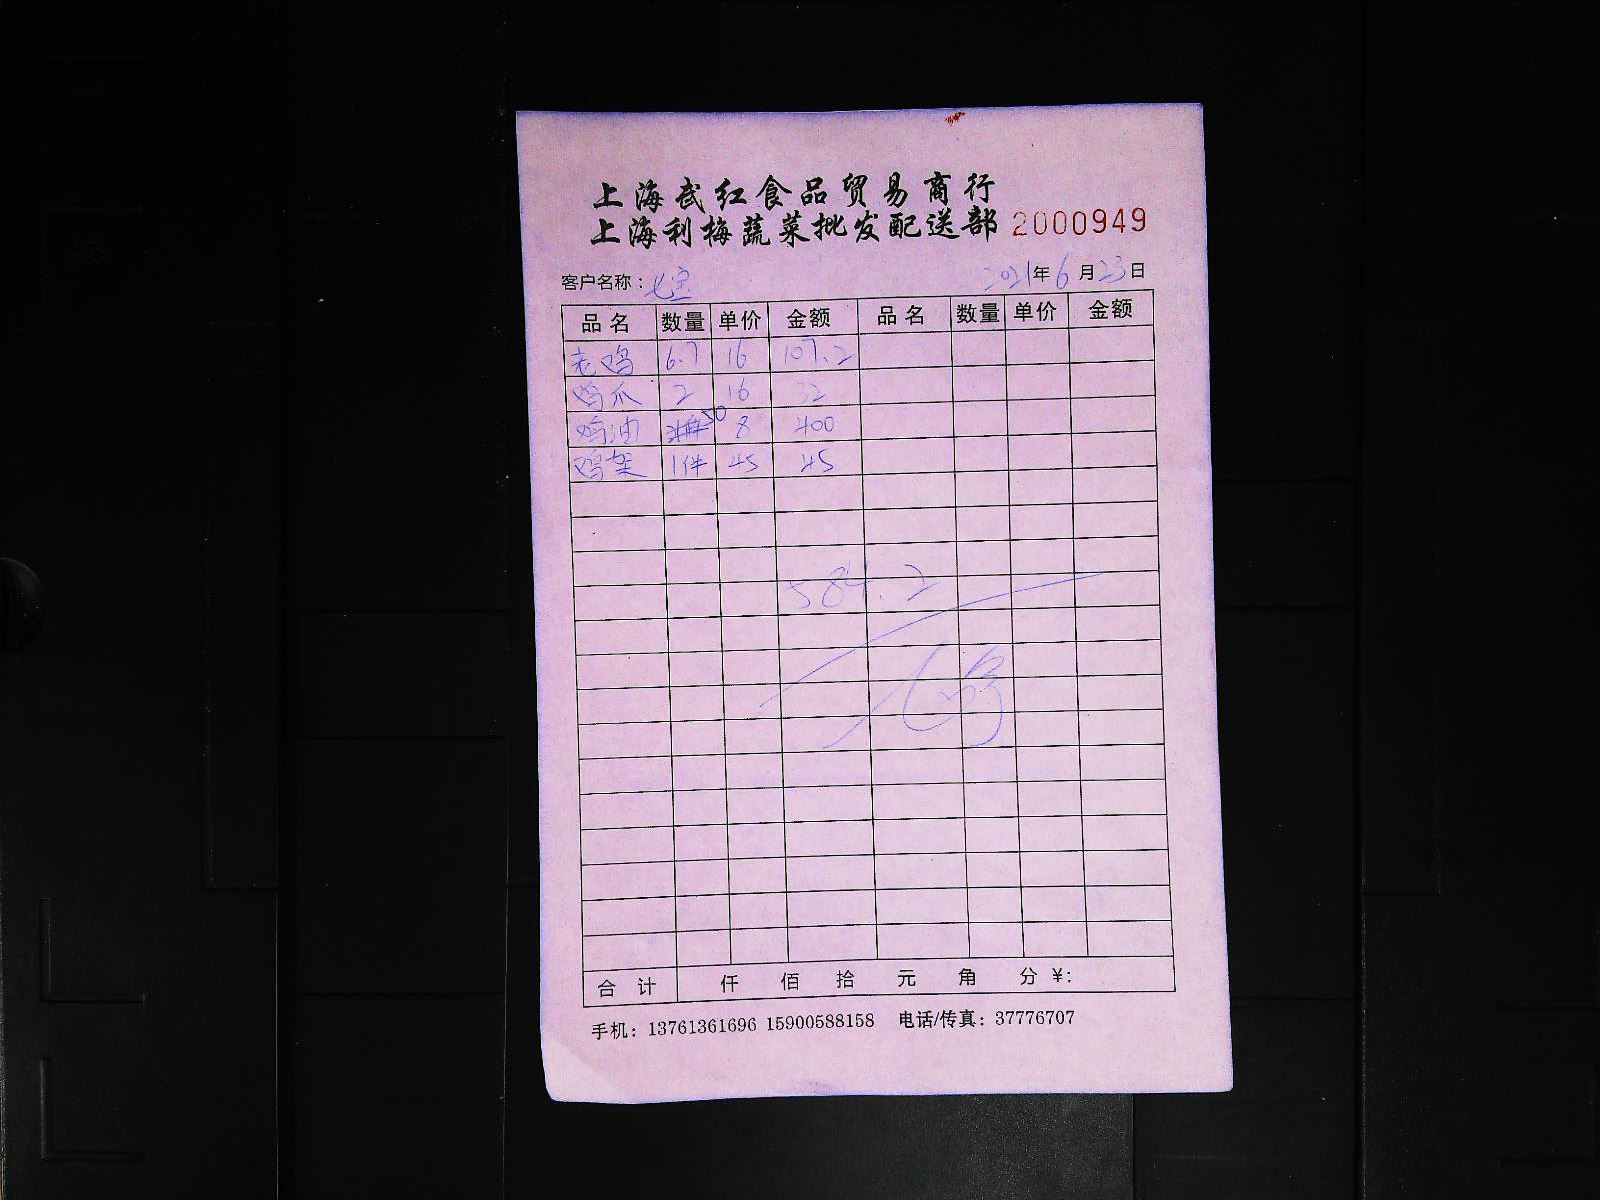 上海武红食品贸易商行
上海利梅蔬菜批发配送部 2000949
客户名称：七宝 2021年6月23日
品名 数量 单价 金额 品名 数量 单价 金额
老鸡 6.7 16 107.2
鸡爪 2 16 32
鸡油 50 8 400
鸡架 1件 45 45
584.2
合计 仟 佰 拾 元 角 分 ¥:
手机：13761361696 15900588158 电话/传真：37776707